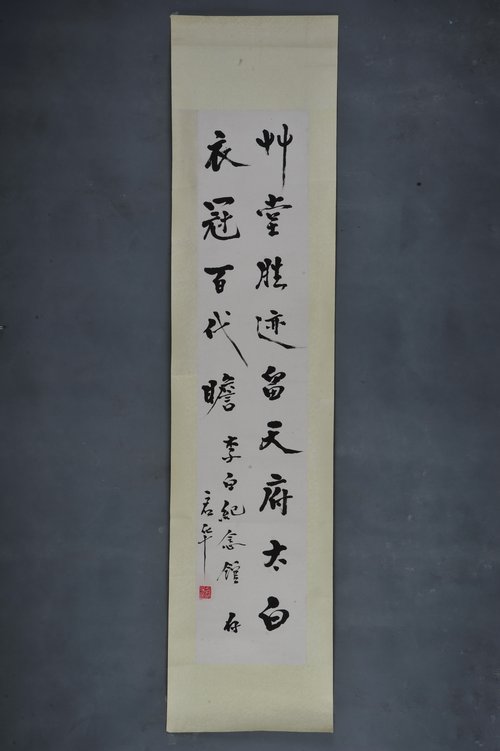 艸堂胜迹留天府太白
衣冠百代瞻
李白紀念館 存
君华